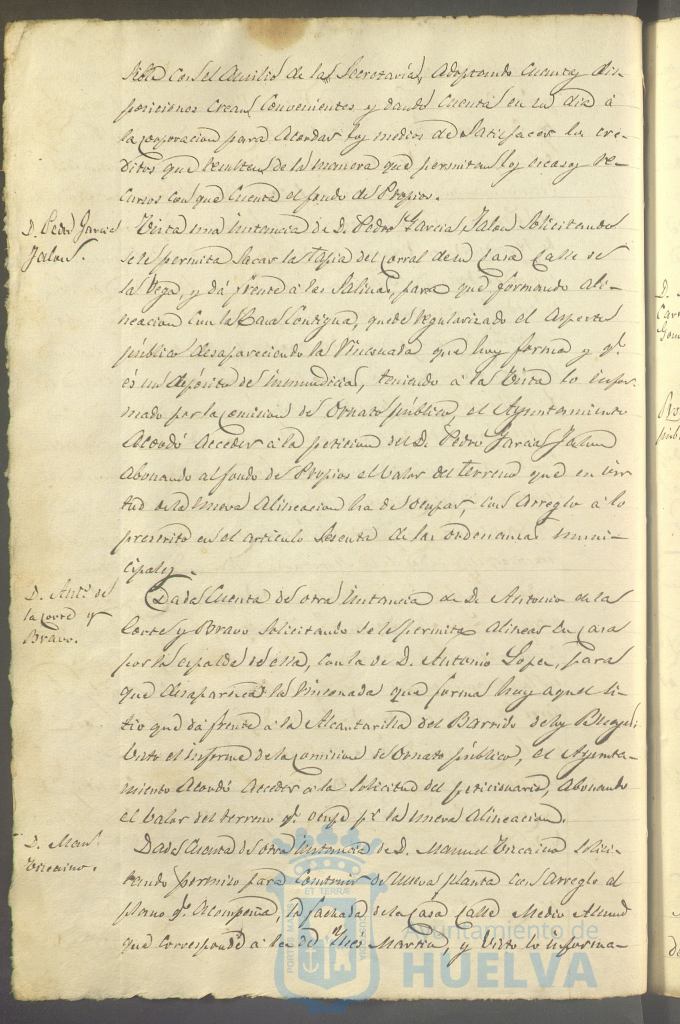 con el auxilio de la Secretaría, adoptando cuantas dis-
posiciones crean convenientes y dando cuenta en su dia á
la corporacion para acordar los medios de satisfacer los cre-
ditos que resulten de la manera que permitan los escasos re-
cursos con que cuenta el fondo de Propios.
D. Pedro Garcia
Jalon.
Vista una instancia de D. Pedro Garcia Jalon solicitando
se le permita sacar la tapia del corral de su casa calle de
la Vega, y dá frente á las Salinas, para que formando ali-
neacion con la casa contigua, quede regularizado el aspecto
público desapareciendo la rinconada que hoy forma y qe.
es un depósito de inmundicias, teniendo á la vista lo infor-
mado por la comision de ornato público, el Ayuntamiento
acordó acceder á la peticion del D. Pedro Garcia Jalon
abonando al fondo de Propios el valor del terreno que en vir-
tud de la nueva alineacion ha de ocupar, con arreglo á lo
prescrito en el articulo sesenta de las ordenanzas muni-
cipales.
D. Anto. de
la Corte y
Bravo.
Dada cuenta de otra instancia de D. Antonio de la
Corte y Bravo solicitando se le permita alinear su casa
por la espalda de ella, con la de D. Antonio Lopez, para
que desaparezca la rinconada que forma hoy aquel si-
tio que dá frente á la Alcantarilla del Barrido de los
visto el informe de la comision de ornato público, el Ayunta-
miento acordó acceder á la solicitud del peticionario, abonando
el valor del terreno qe. ocupe pr. la nueva alineacion.
D. Manl.
Vizcaino.
Dada cuenta de otra instancia de D. Manuel Vizcaino solici-
tando permiso para construir de nueva planta con arreglo al
plano qe. acompaña, la fachada de la casa calle Medio Almud
que corresponde á la de Inés Martin, y visto lo informa-
Ayuntamiento de
HUELVA